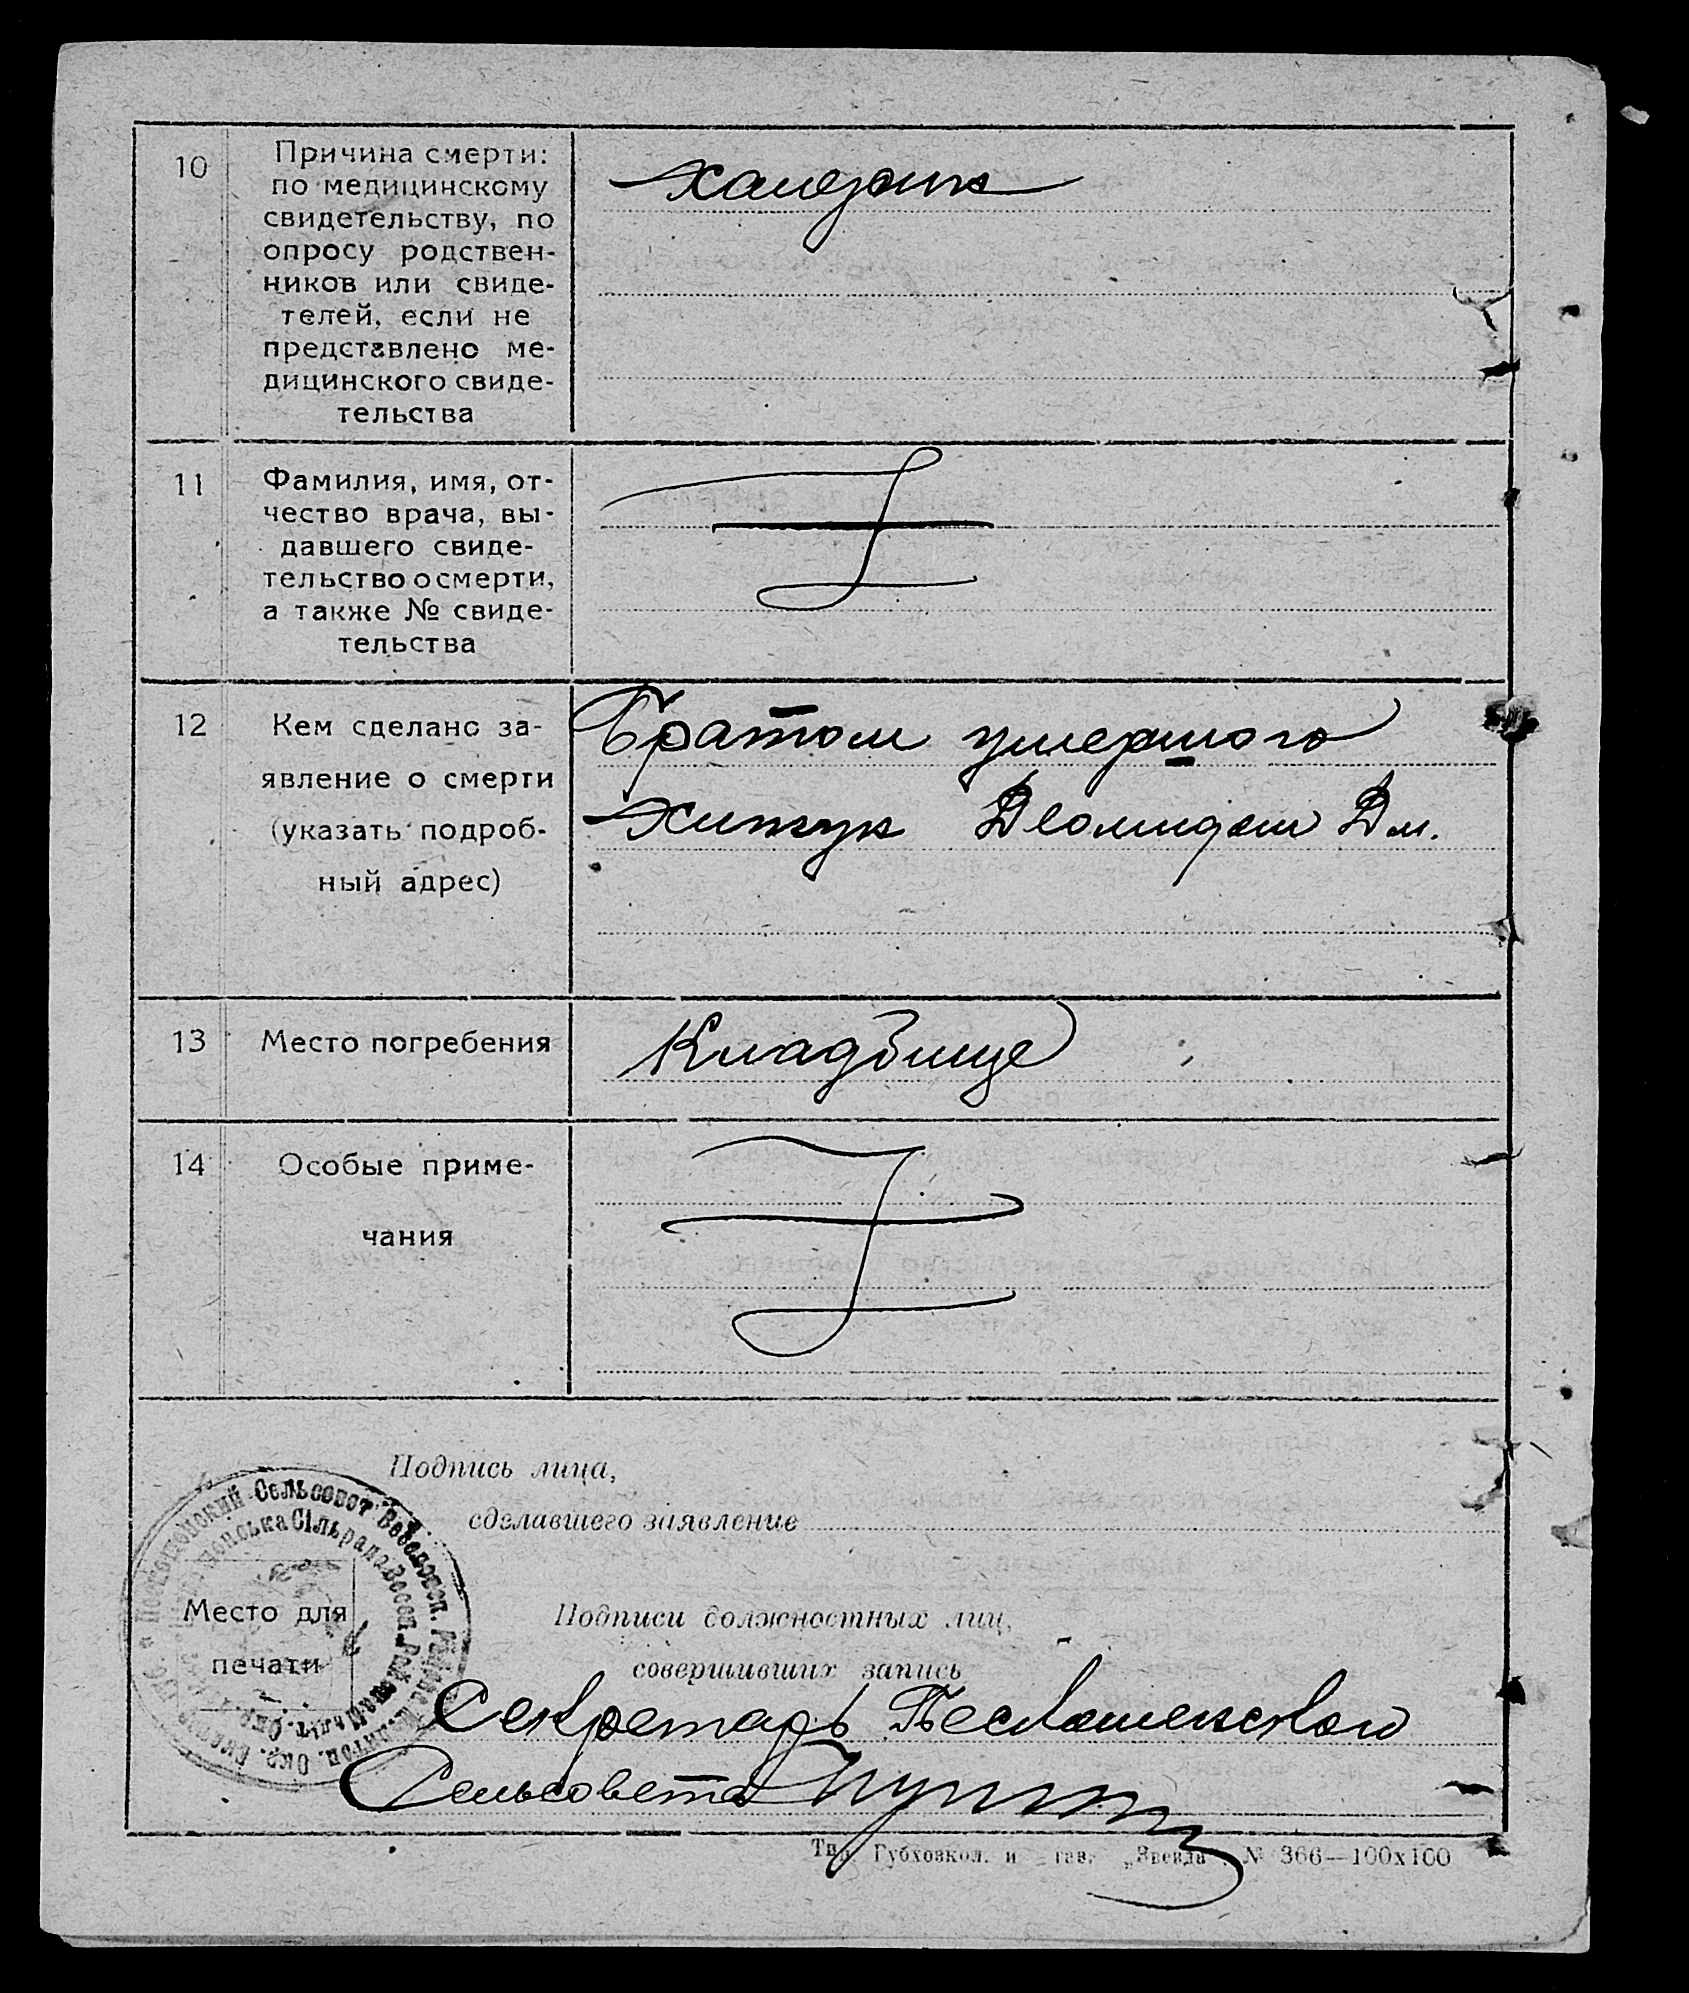 10
Причина смерти:
по медицинскому
свидетельству, по
опросу родствен-
ников или свиде-
телей, если не
представлено ме-
дицинского свиде-
тельства
11
Фамилия, имя, от-
чество врача, вы-
давшего свиде-
тельство о смерти,
а также № свиде-
тельства
12
Кем сделано за-
явление о смерти
(указать подроб-
ный адрес)
Братом умершого
Хижук Деомидом Дм.
13
Место погребения
Кладбище
14
Особые приме-
чания
Подпись лица,
сделавшего заявление
Сельсовет
Сільрада
Место для
печати
Подписи должностных лиц,
совершивших запись
Секретарь
Сельсовета
Тип. Губхозкол. и „Звезда“. № 366—100х100